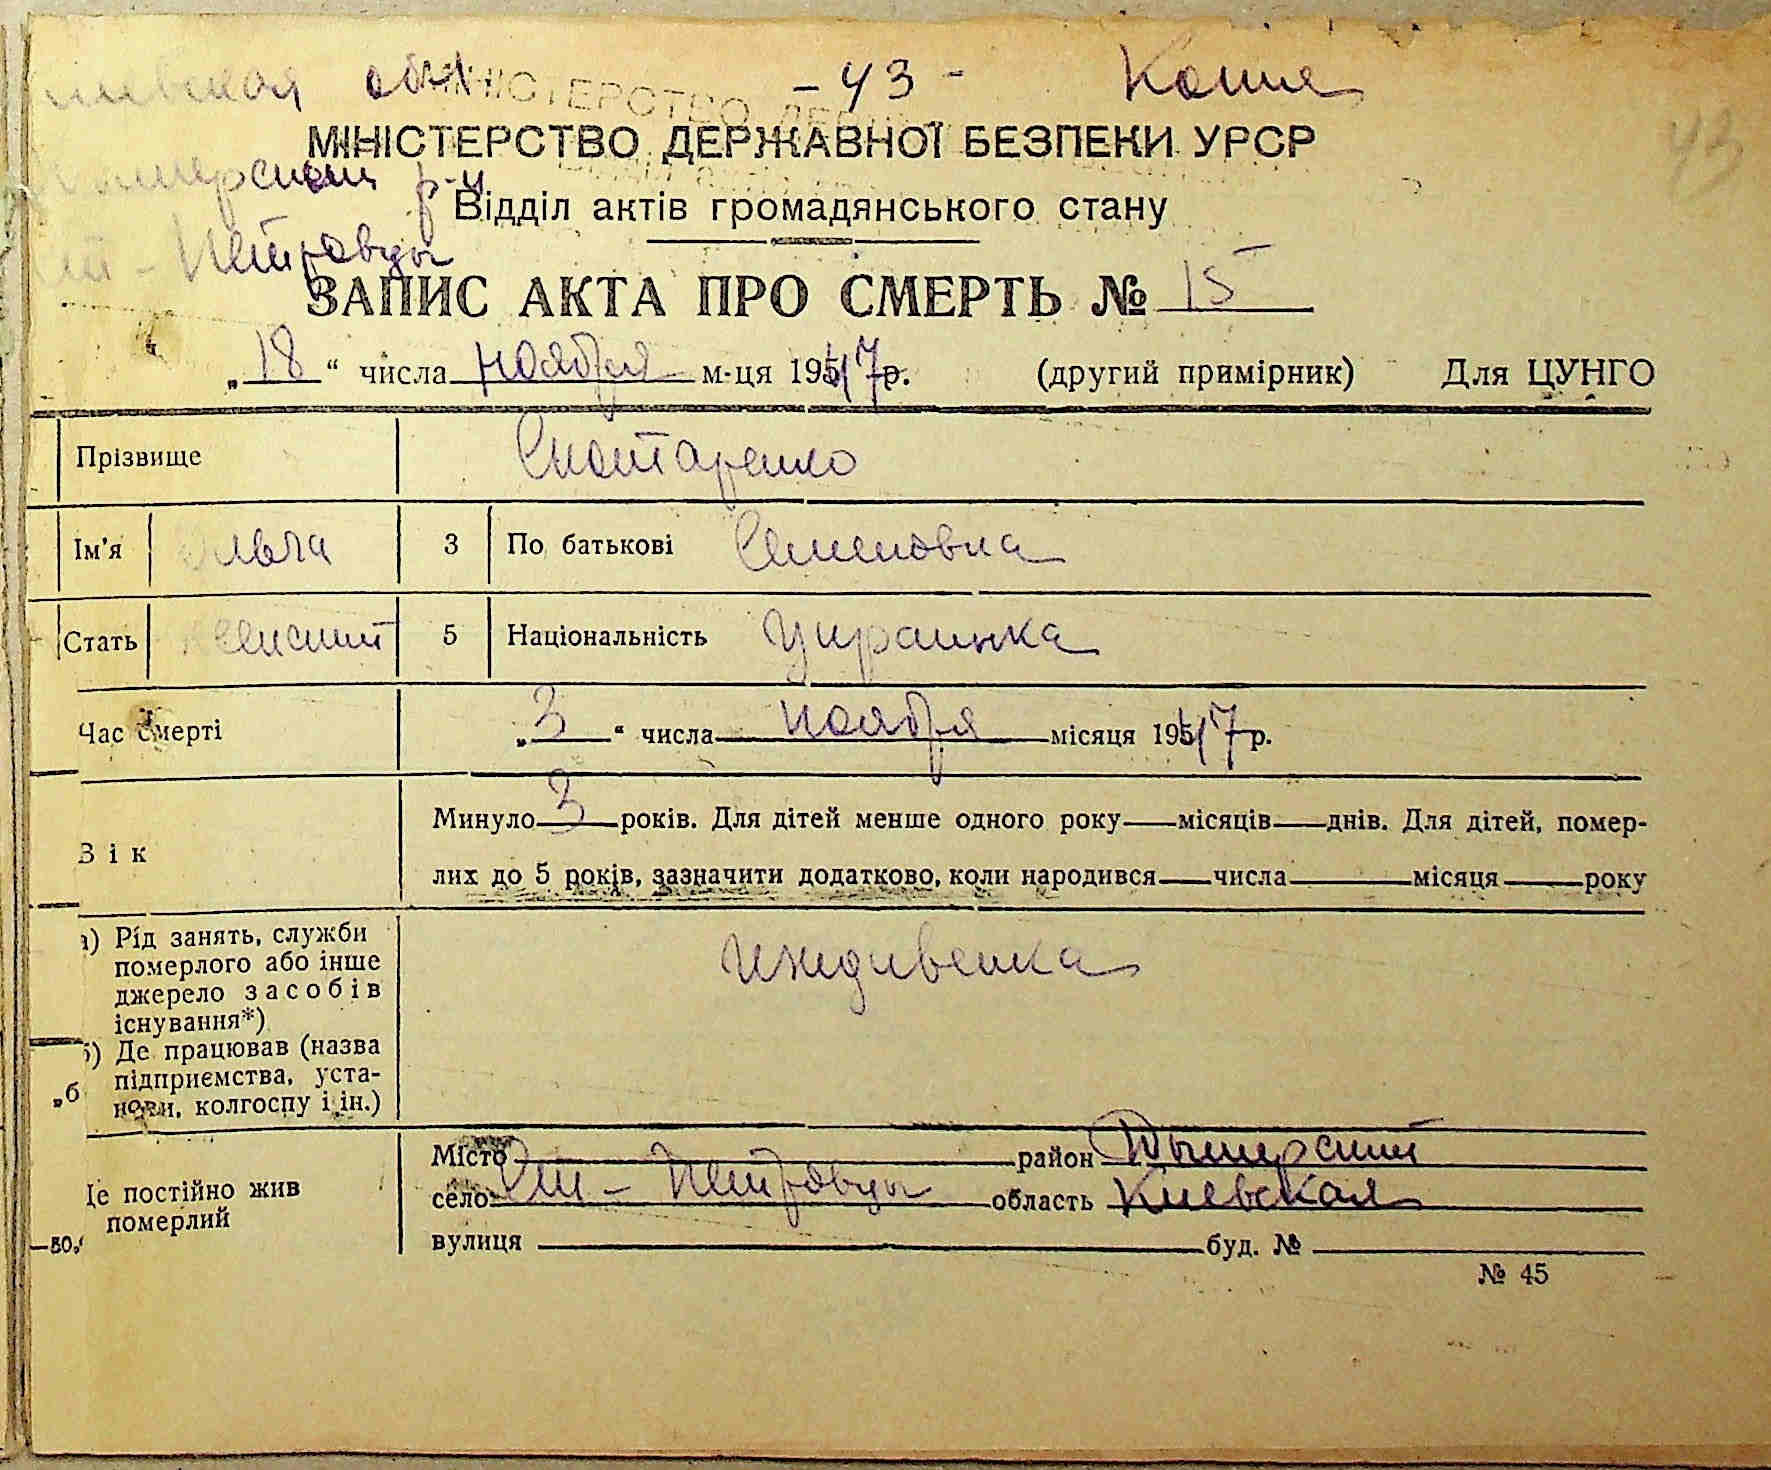 обл - 43 - Копия
43
МІНІСТЕРСТВО ДЕРЖАВНОЇ БЕЗПЕКИ УРСР
р-н
Відділ актів громадянського стану
Петровцы
ЗАПИС АКТА ПРО СМЕРТЬ № 15
„18“ числа ноября м-ця 1947р. (другий примірник) Для ЦУНГО
Прізвище
Ім'я Ольга 3 По батькові Семеновна
Стать женский 5 Національність Украинка
Час смерті „3“ числа ноября місяця 1947р.
Вік Минуло 3 років. Для дітей менше одного року — місяців — днів. Для дітей, помер-
лих до 5 років, зазначити додатково, коли народився — числа — місяця — року
а) Рід занять, служби
померлого або інше
джерело засобів
існування*)
Иждивенка
б) Де працював (назва
підприємства, уста-
нови, колгоспу і ін.)
„б
Де постійно жив
померлий
Місто район Дымерский
село Ст - Петровцы область Киевская
вулиця буд. №
№ 45